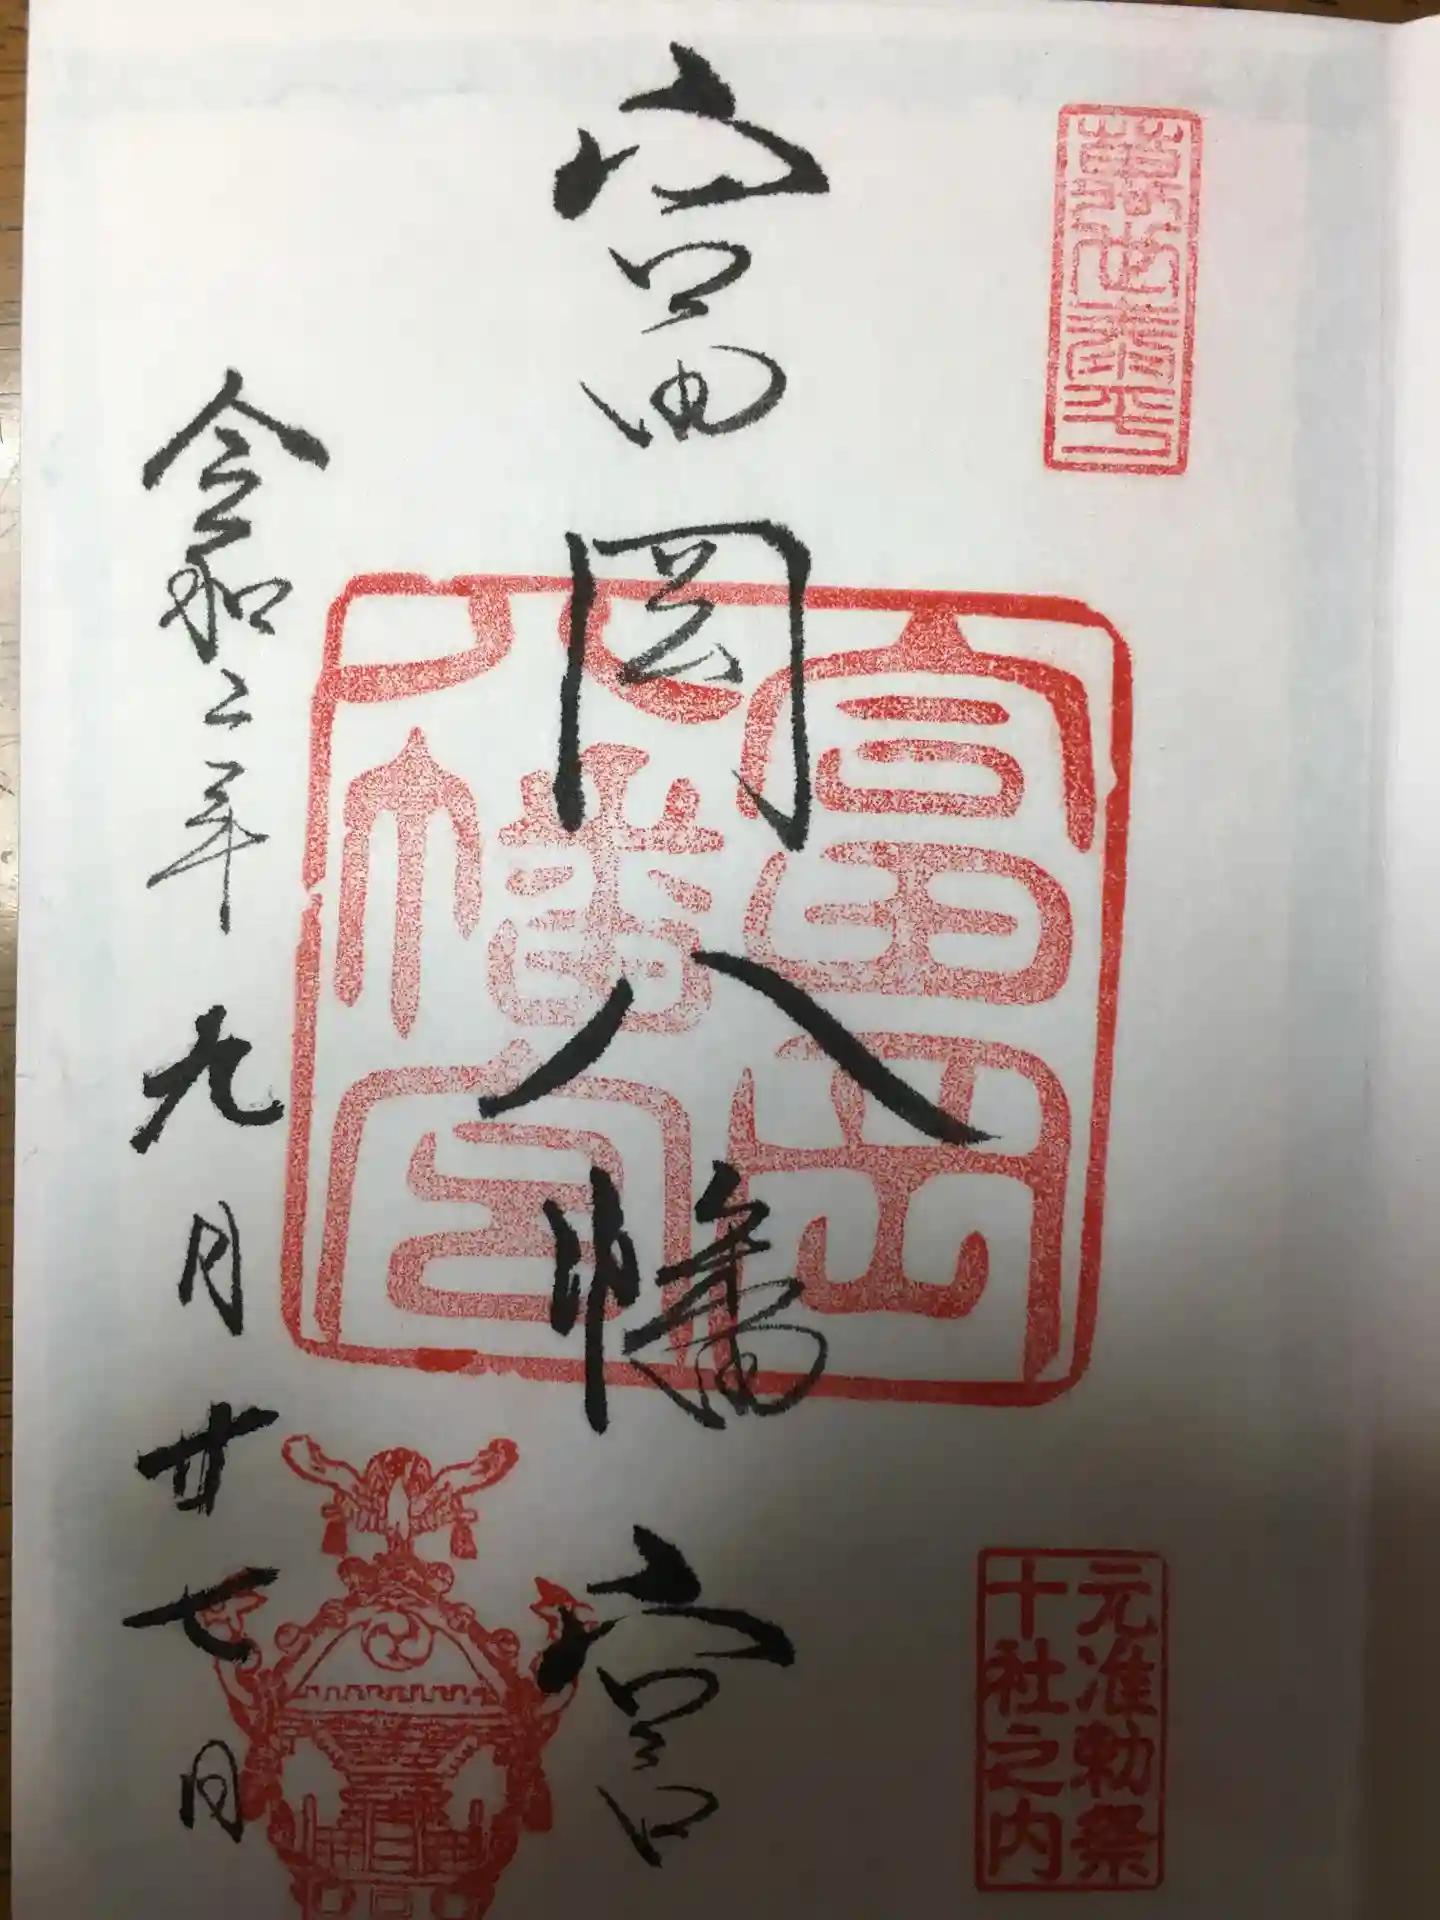 萬世泰平
元准勅祭
十社之内
富岡八幡宮
富岡
八幡宮
令和二年九月廿七日